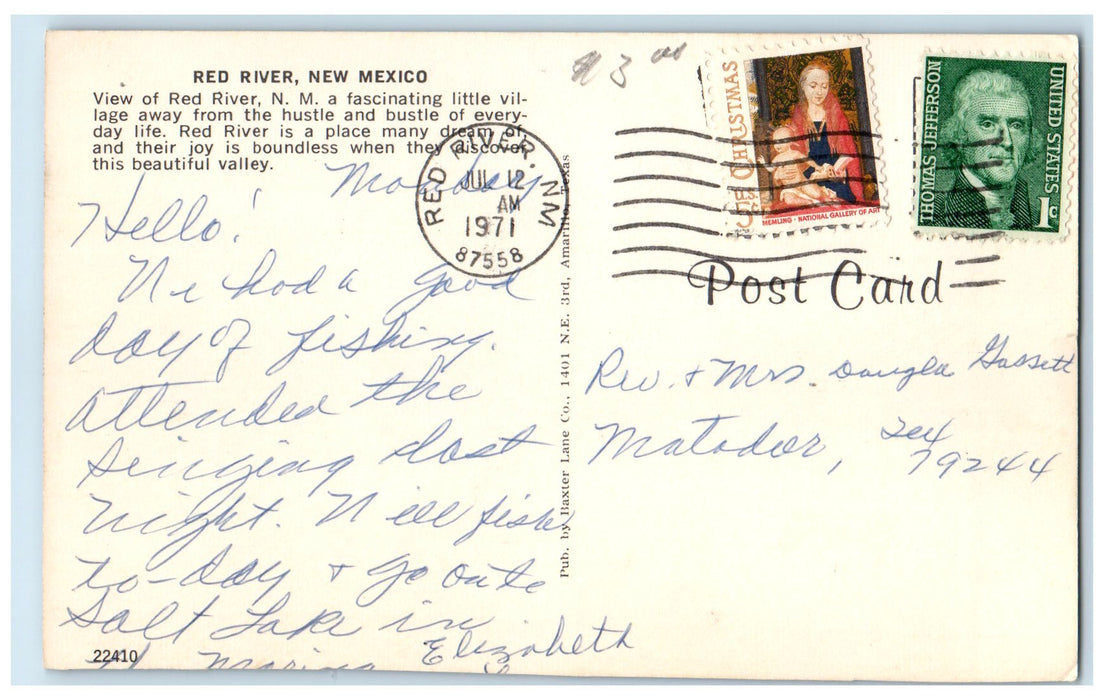 RED RIVER, NEW MEXICO
View of Red River, N. M. a fascinating little vil-
lage away from the hustle and bustle of every-
day life. Red River is a place many dream of,
and their joy is boundless when they discover
this beautiful valley.
Monday
Hello!
We had a good
day of fishing.
attended the
singing last
night. Will fish
to-day & go on to
Salt Lake in
Elizabeth
22410
RED RIVER, NM
JUL 12
AM
1971
87558
Pub. by Baxter Lane Co., 1401 N.E. 3rd, Amarillo, Texas
CHRISTMAS
MEMLING · NATIONAL GALLERY OF ART
THOMAS JEFFERSON
UNITED STATES
1c
Post Card
Rev. & Mrs. Douglas Gossett
Matador, Tex
79244